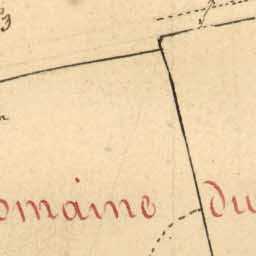 omaine du